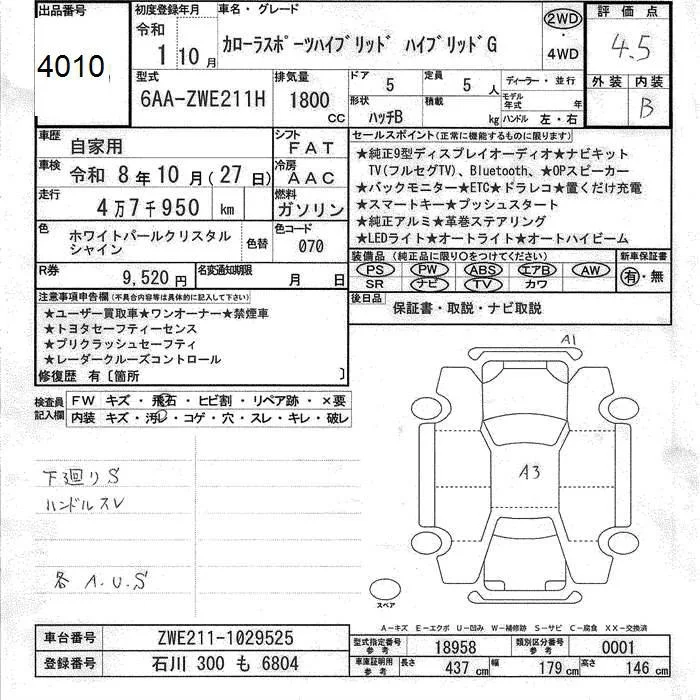 出品番号
4010
初度登録年月
令和
1 10 月
車名・グレード
カローラスポーツハイブリッド ハイブリッドG
2WD
・
4WD
評価点
4.5
外装 内装
B
型式
6AA-ZWE211H
排気量
1800
CC
ドア
5
定員
5 人
形状
ハッチB
積載
kg
ディーラー・並行
モデル年式 年
ハンドル 左・右
車歴
自家用
シフト
FAT
車検
令和 8年 10月 (27日)
冷房
AAC
走行
4万7千950 km
燃料
ガソリン
色
ホワイトパールクリスタル
シャイン
色替
色コード
070
R券
9,520 円
名変通知期限
月 日
セールスポイント(正常に機能するものに限ります)
★純正9型ディスプレイオーディオ★ナビキット
TV(フルセグTV)、Bluetooth、★OPスピーカー
★バックモニター★ETC★ドラレコ★置くだけ充電
★スマートキー★プッシュスタート
★純正アルミ★革巻ステアリング
★LEDライト★オートライト★オートハイビーム
装備品(純正品に限り○をつけてください)
PS PW ABS エアB AW
SR ナビ TV カワ
新車保証書
有・無
後日品
保証書・取説・ナビ取説
注意事項申告欄(不具合内容等は具体的に記入して下さい)
★ユーザー買取車★ワンオーナー★禁煙車
★トヨタセーフティーセンス
★プリクラッシュセーフティ
★レーダークルーズコントロール
修復歴 有〔箇所 〕
検査員
記入欄
FW キズ・飛石・ヒビ割・リペア跡・×要
内装 キズ・汚レ・コゲ・穴・スレ・キレ・破レ
下廻りS
ハンドルスレ
各 A.U.S
A1
A3
スペア
A−キズ E−エクボ U−凹み W−補修跡 S−サビ C−腐食 XX−交換済
車台番号
ZWE211-1029525
登録番号
石川 300 も 6804
型式指定番号
参考
18958
類別区分番号
参考
0001
車庫証明用
参考
長さ 437 cm
幅 179 cm
高さ 146 cm